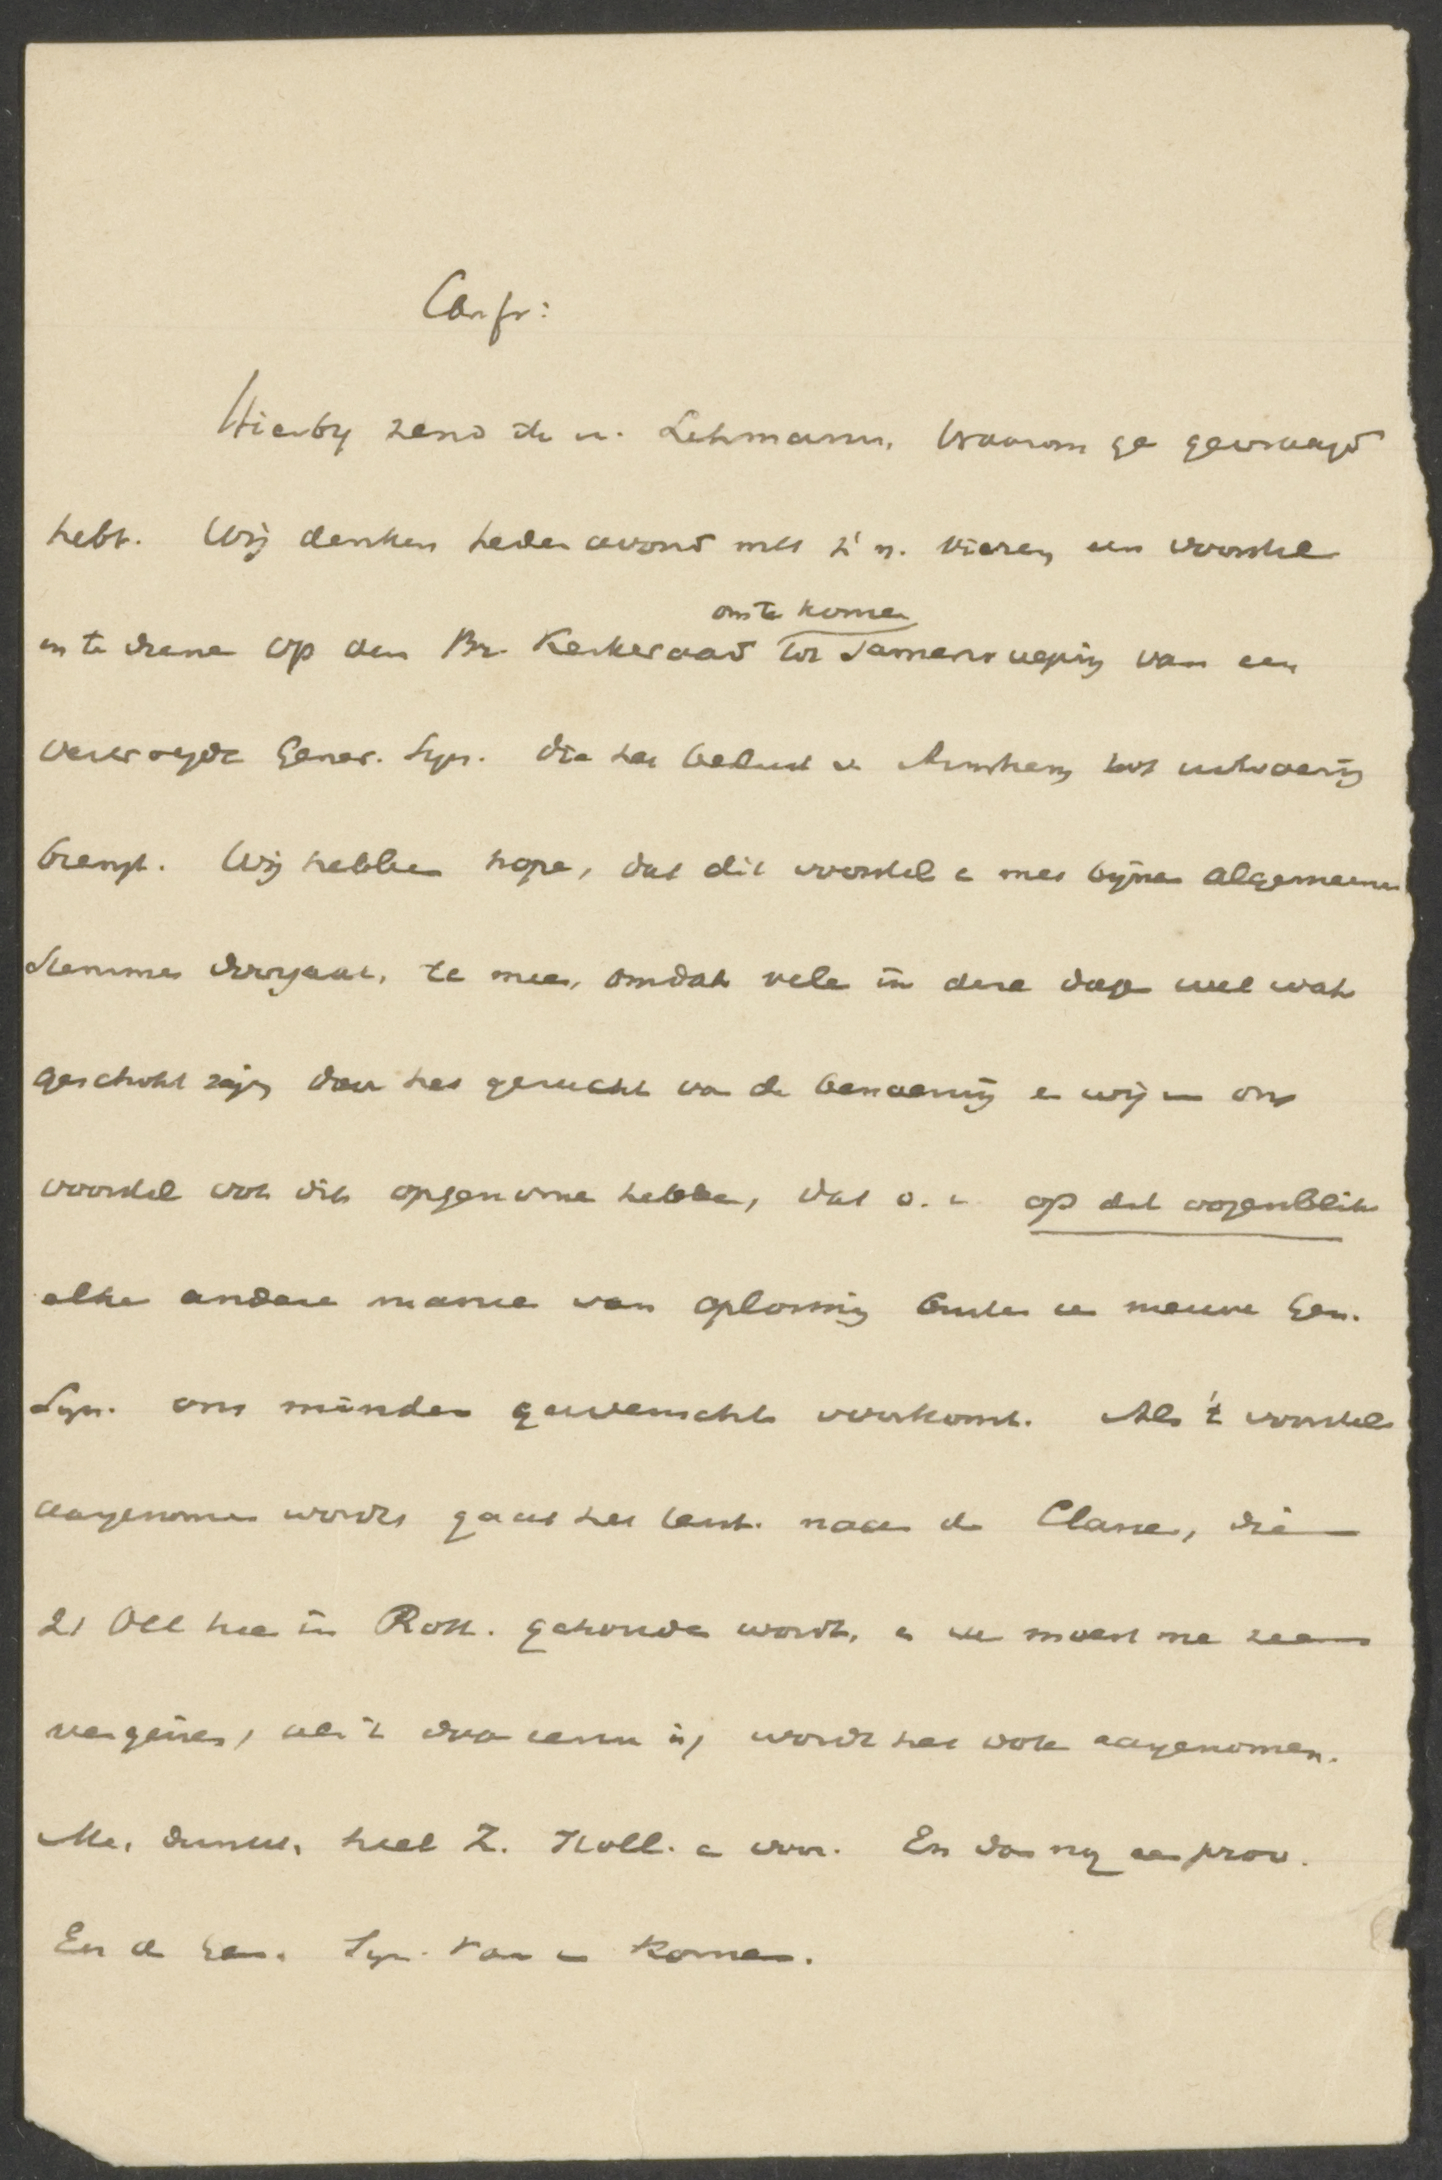 Confr:
Hierby zend ik u. Lehmann, waarom ge gevraagd
hebt. Wij denken heden avond met z'n. vieren een voorstel
in te diene op den Br. Kerkeraad om te komen tot samenroeping van een
vervroegde Gener. Syn. die het besluit v. Arnhem tot uitvoering
brengt. Wij hebben hope, dat dit voorstel met bijna algemeene
stemmen doorgaat, te meer, omdat vele in deze dage wel wat
geschokt zijn door het gerucht van de benoeming en wij in ons
voorstel ook dit opgenome hebbe, dat o. i. op dit oogenblik
elke andere manier van oplossing buiten een nieuwe Gen.
Syn. ons minder gewenscht voorkomt. Als 't voorstel
aangenomen wordt gaat het naar de Classe, die
21 Oct hier in Rott. gehouden wordt, en we moest me zeer
vergissen, als 't daar is, wordt het ook aangenomen.
Me. dunkt, heel Z. Holl. is voor. En dan nog een prov.
En de Gen. Syn. kan komen.